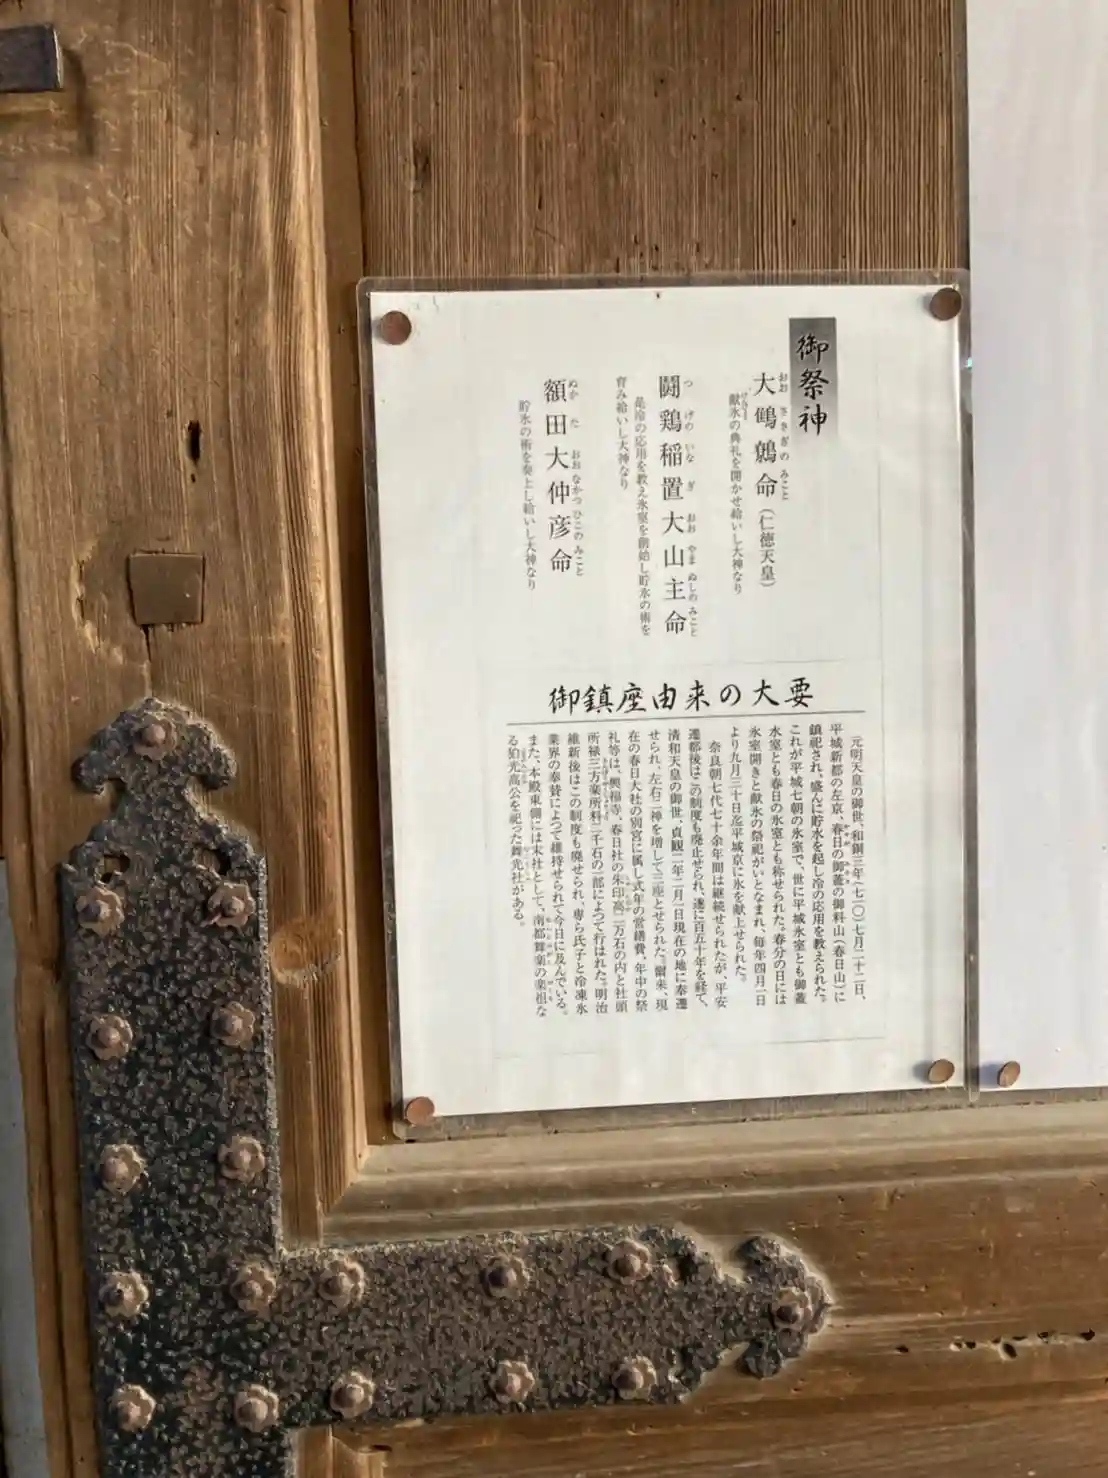 御祭神
大鷦鷯命（仁徳天皇）
おお さざきの みこと
献氷の典礼を開かせ給いし大神なり
けんぴょう
闘鶏稲置大山主命
つ げの いな ぎ おお やま ぬしの みこと
是冷の応用を教え氷室を創始し貯氷の術を
育み給いし大神なり
額田大仲彦命
ぬか た おお なかつ ひこの みこと
貯氷の術を奏上し給いし大神なり
御鎮座由来の大要
元明天皇の御世、和銅三年（七一〇）七月二十二日、
平城新都の左京、春日の御蓋の御料山（春日山）に
鎮祀され、盛んに貯氷を起し冷の応用を教えられた。
これが平城七朝の氷室で、世に平城氷室とも御蓋
氷室とも春日の氷室とも称せられた。春分の日には
氷室開きと献氷の祭祀がいとなまれ、毎年四月一日
より九月三十日迄平城京に氷を献上せられた。
奈良朝七代七十余年間は継続せられたが、平安
遷都後はこの制度も廃止せられ、遂に百五十年を経て、
清和天皇の御世、貞観二年二月一日現在の地に奉遷
せられ、左右二神を増して三座とせられた。爾来、現
在の春日大社の別宮に属し式年の営繕費、年中の祭
礼等は、興福寺、春日社の朱印高二万石の内と社頭
所禄三方楽所料二千石の一部によつて行はれた。明治
維新後はこの制度も廃せられ、専ら氏子と冷凍氷
業界の奉賛によつて維持せられて今日に及んでいる。
また、本殿東側には末社として、南都舞楽の楽祖な
る狛光高公を祀った舞光社がある。